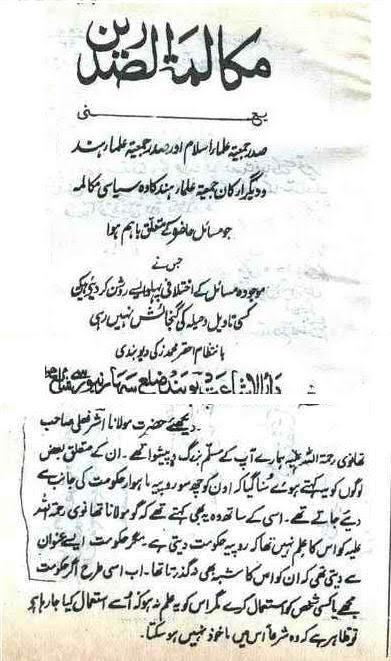 مکالمۃ الصدرین
یعنی
صدر جمعیۃ علماء اسلام اور صدر جمعیۃ علماء ہند
و دیگر ارکان جمعیۃ علماء ہند کا وہ سیاسی مکالمہ
جو مسائل حاضرہ کے متعلق باہم ہوا
جس نے
موجودہ مسائل کے اختلافی پہلو ایسے روشن کر دیئے ہیں کہ
کسی تاویل و حیلہ کی گنجائش نہیں رہی
بانتظام احقر محمد زکی دیوبندی
دار الاشاعت دیوبند ضلع سہارنپور سے شائع ہوا
دیکھئے حضرت مولانا اشرفعلی صاحب
تھانوی رحمۃ اللہ علیہ ہمارے آپ کے مسلم بزرگ و پیشوا تھے۔ ان کے متعلق بعض
لوگوں کو یہ کہتے ہوئے سنا گیا کہ اون کو چھ سو روپیہ ماہوار حکومت کی جانب سے
دیئے جاتے تھے۔ اسی کے ساتھ وہ یہ بھی کہتے تھے کہ گو مولانا تھانوی رحمۃ اللہ
علیہ کو اس کا علم نہیں تھا کہ روپیہ حکومت دیتی ہے۔ مگر حکومت ایسے عنوان
سے دیتی تھی کہ ان کو اس کا شبہ بھی نہ گذرتا تھا۔ اب اسی طرح اگر حکومت
مجھے یا کسی شخص کو استعمال کرے مگر اس کو یہ علم نہ ہو کہ اُسے استعمال کیا جا رہا ہے
تو ظاہر ہے کہ وہ شرعاً اس میں ماخوذ نہیں ہو سکتا۔